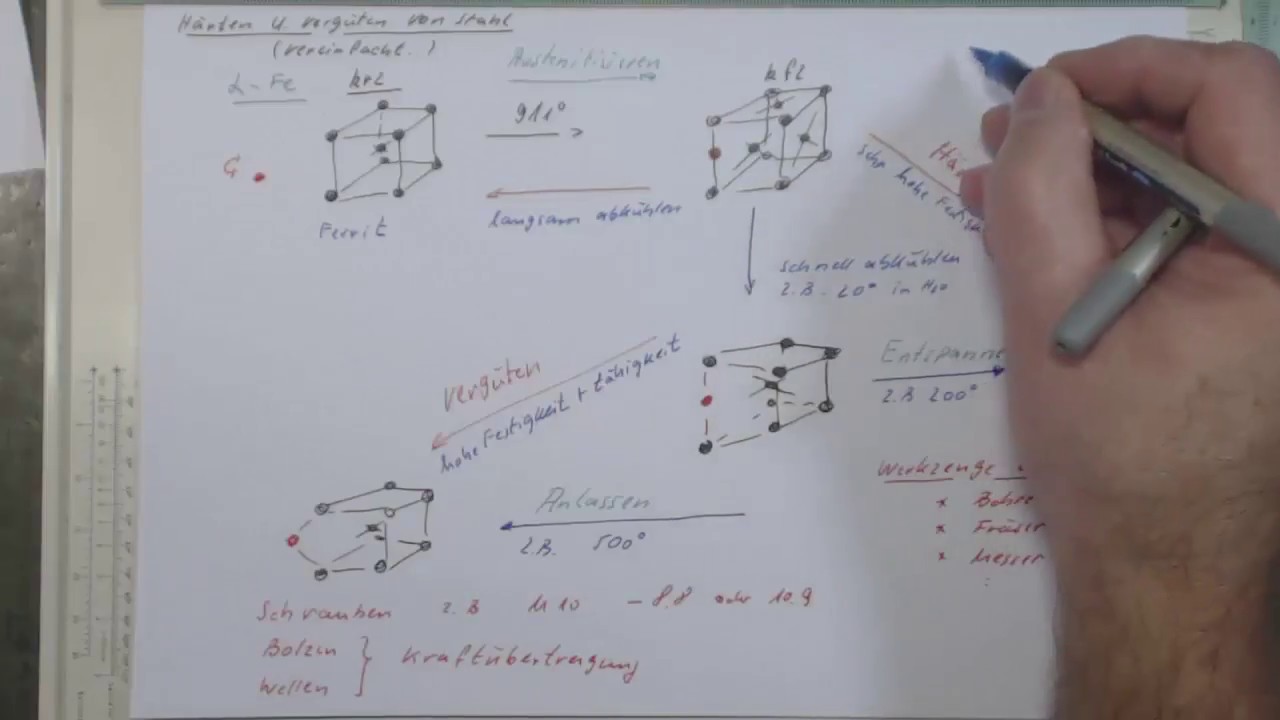 Härten u. vergüten von Stahl
(vereinfacht.)
α-Fe
krz
Austenitisieren
911°
kfz
C
Ferrit
langsam abkühlen
Här
sehr hohe Festigk
schnell abkühlen
z.B. 20° in H₂O
vergüten
hohe Festigkeit + Zähigkeit
Entspanne
z.B 200°
Werkzeuge
x Bohre
x Fräser
x Messer
:
Anlassen
z.B. 500°
Schrauben z.B M10 - 8.8 oder 10.9
Bolzen
Wellen
Kraftübertragung